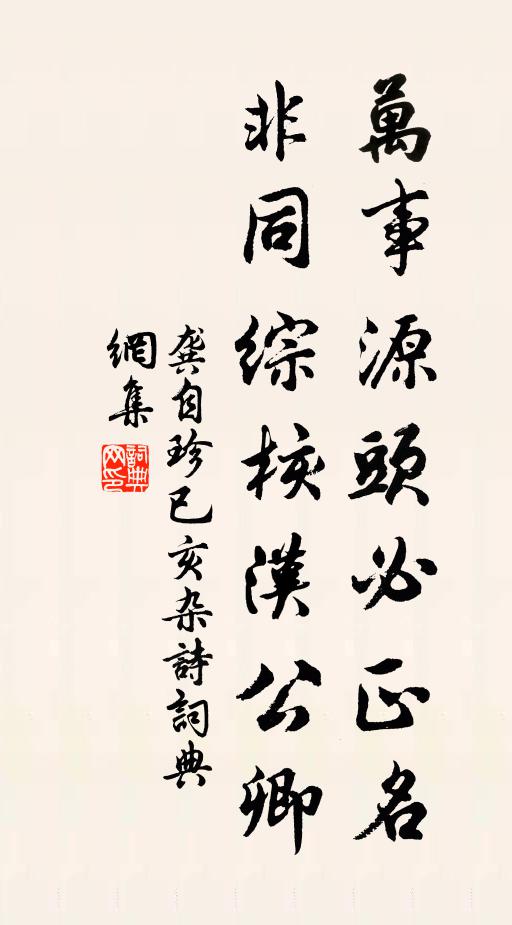 萬事源頭必正名
非同綜核漢公卿
龔自珍己亥杂詩詞典
網集
詞典
网印